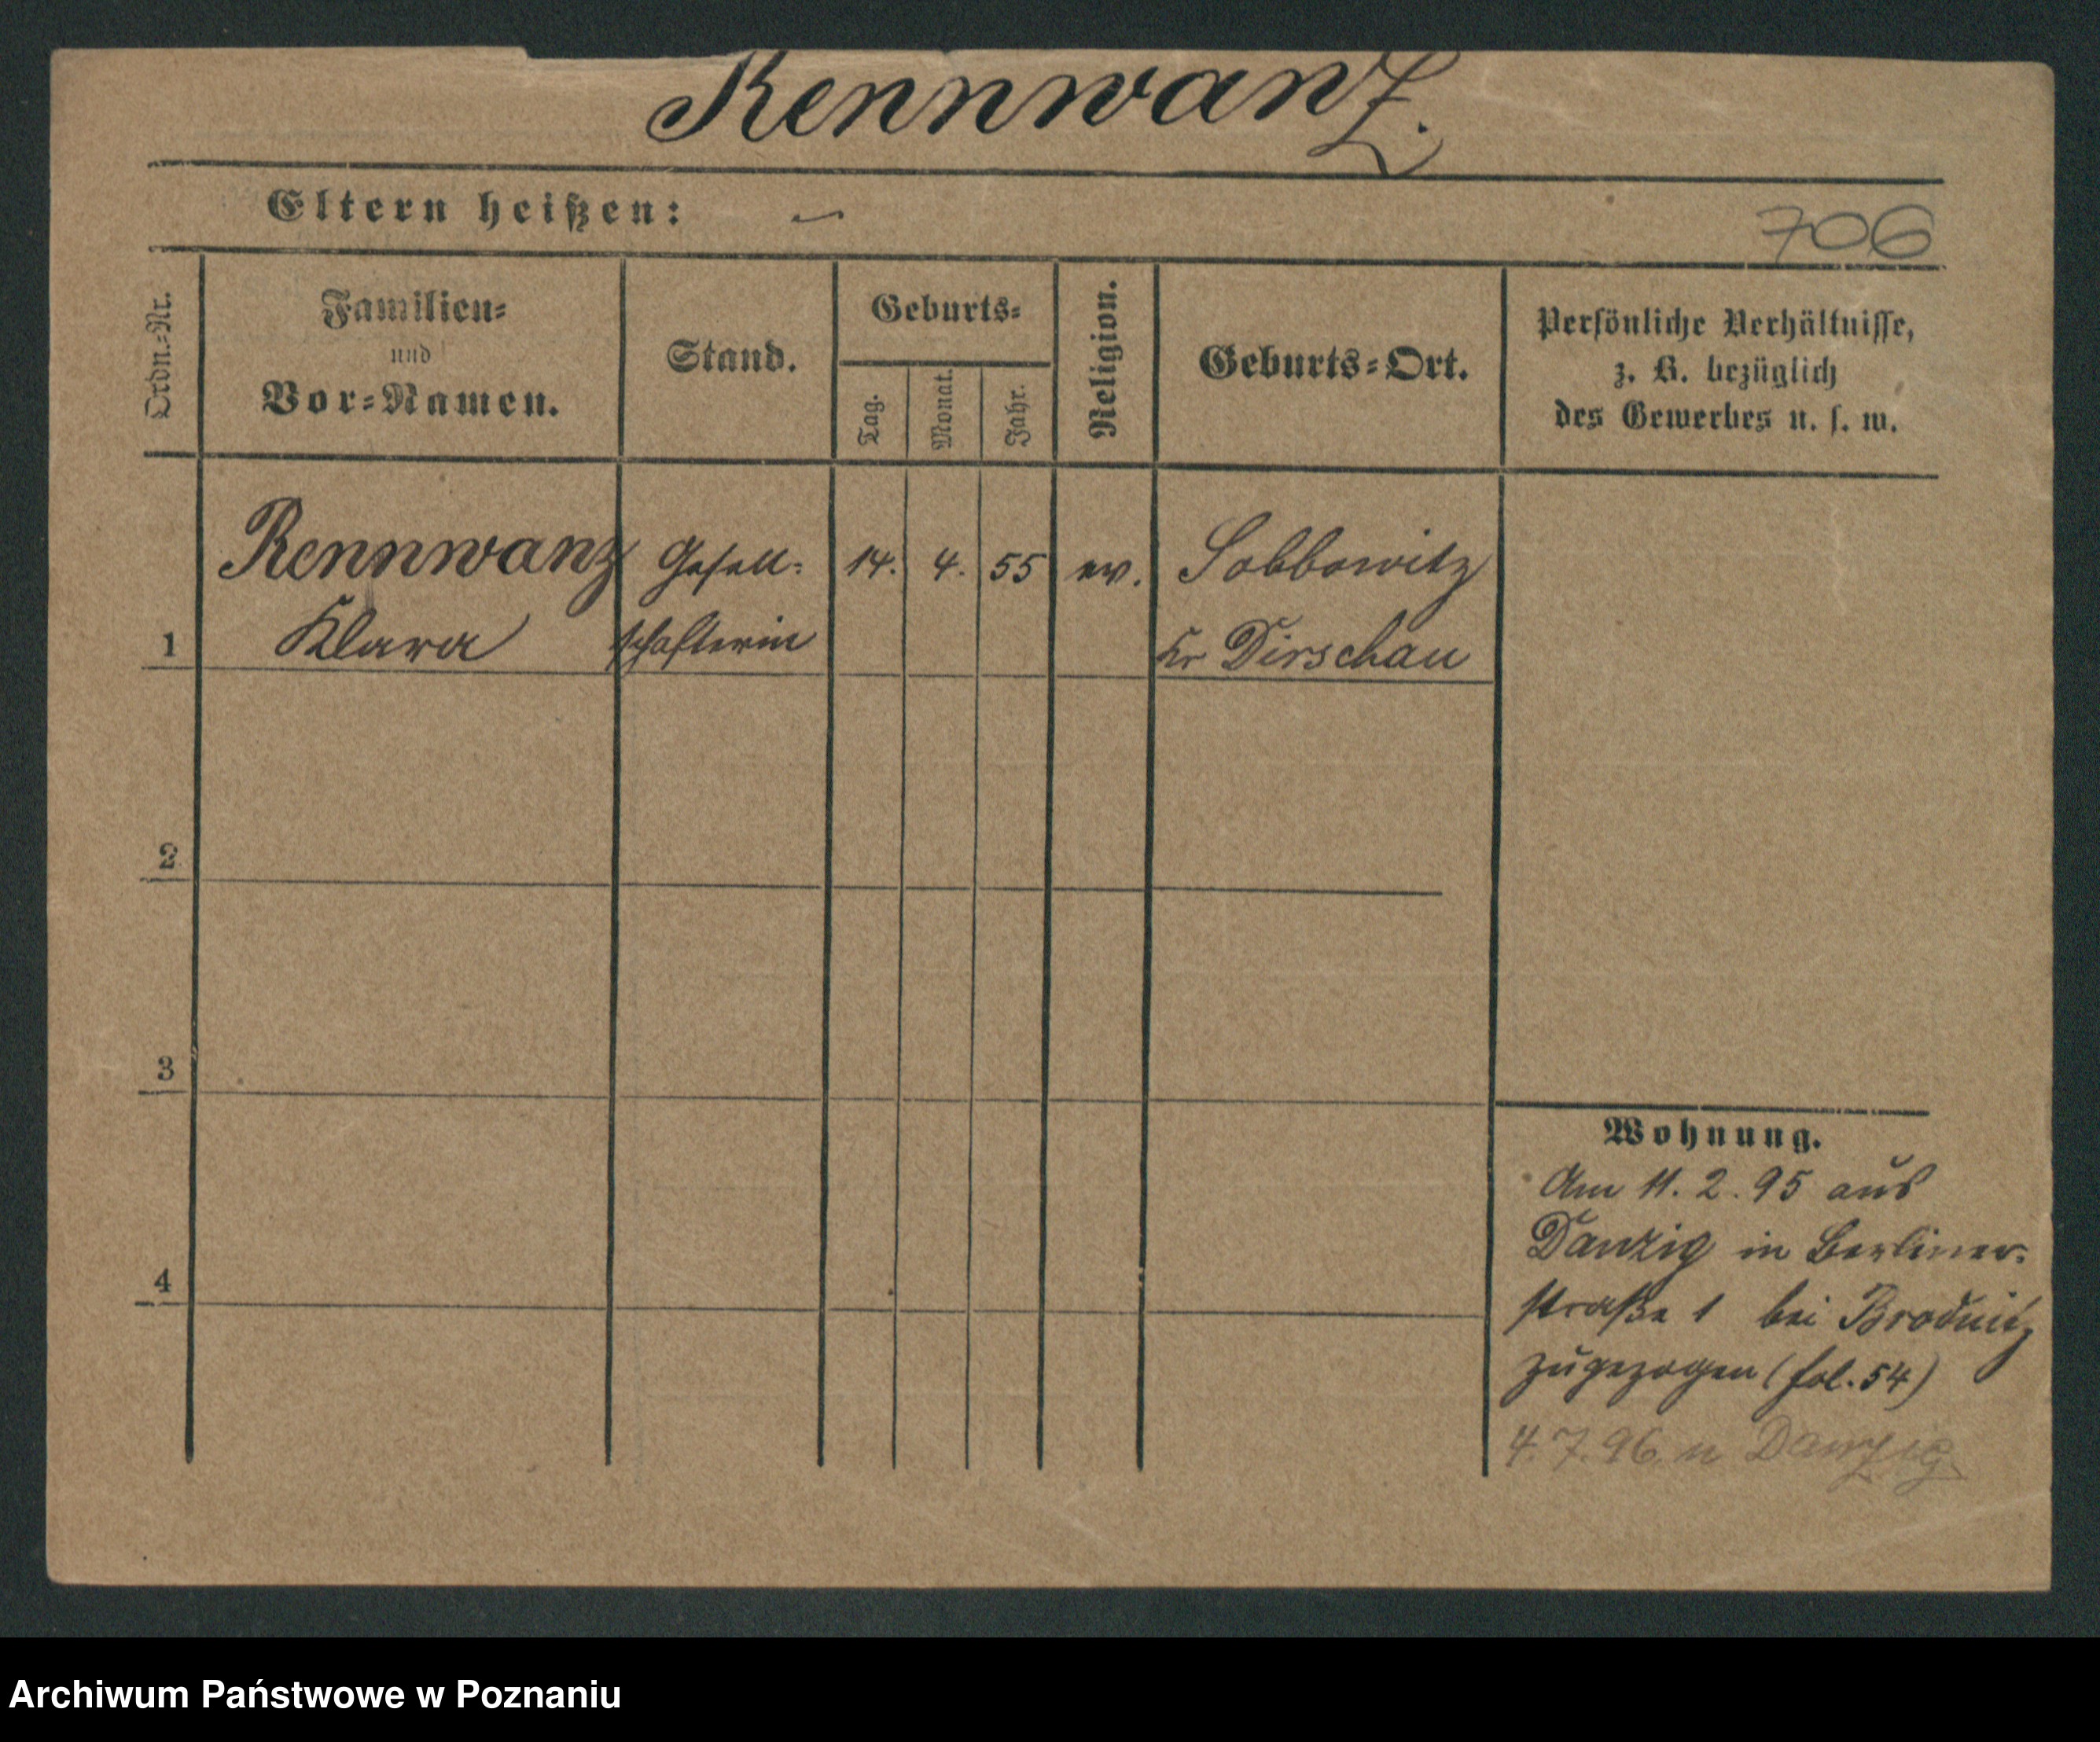 Rennwanz.
Eltern heißen: —
706
Ordn.-Nr.
Familien-
und
Vor-Namen.
Stand.
Geburts-
Tag.
Monat.
Jahr.
Religion.
Geburts-Ort.
Persönliche Verhältnisse,
z. B. bezüglich
des Gewerbes u. s. w.
Rennwanz Gesell- 14. 4. 55 ev. Sobbowitz
1 Klara schafterin Kr Dirschau
2
3
4
Wohnung.
Am 11. 2. 95 aus
Danzig in Berliner-
straße 1 bei Brodnitz
zugezogen (fol. 54)
4. 7. 96. n Danzig
Archiwum Państwowe w Poznaniu